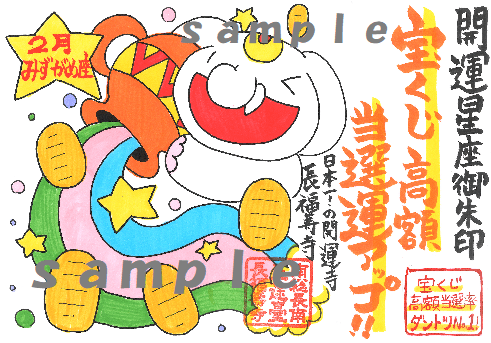 開運星座御朱印
宝くじ高額
当選運アップ!!
日本一の開運寺
長福壽寺
2月
みずがめ座
宝くじ
高額当選率
ダントツNo.1!
sample
sample